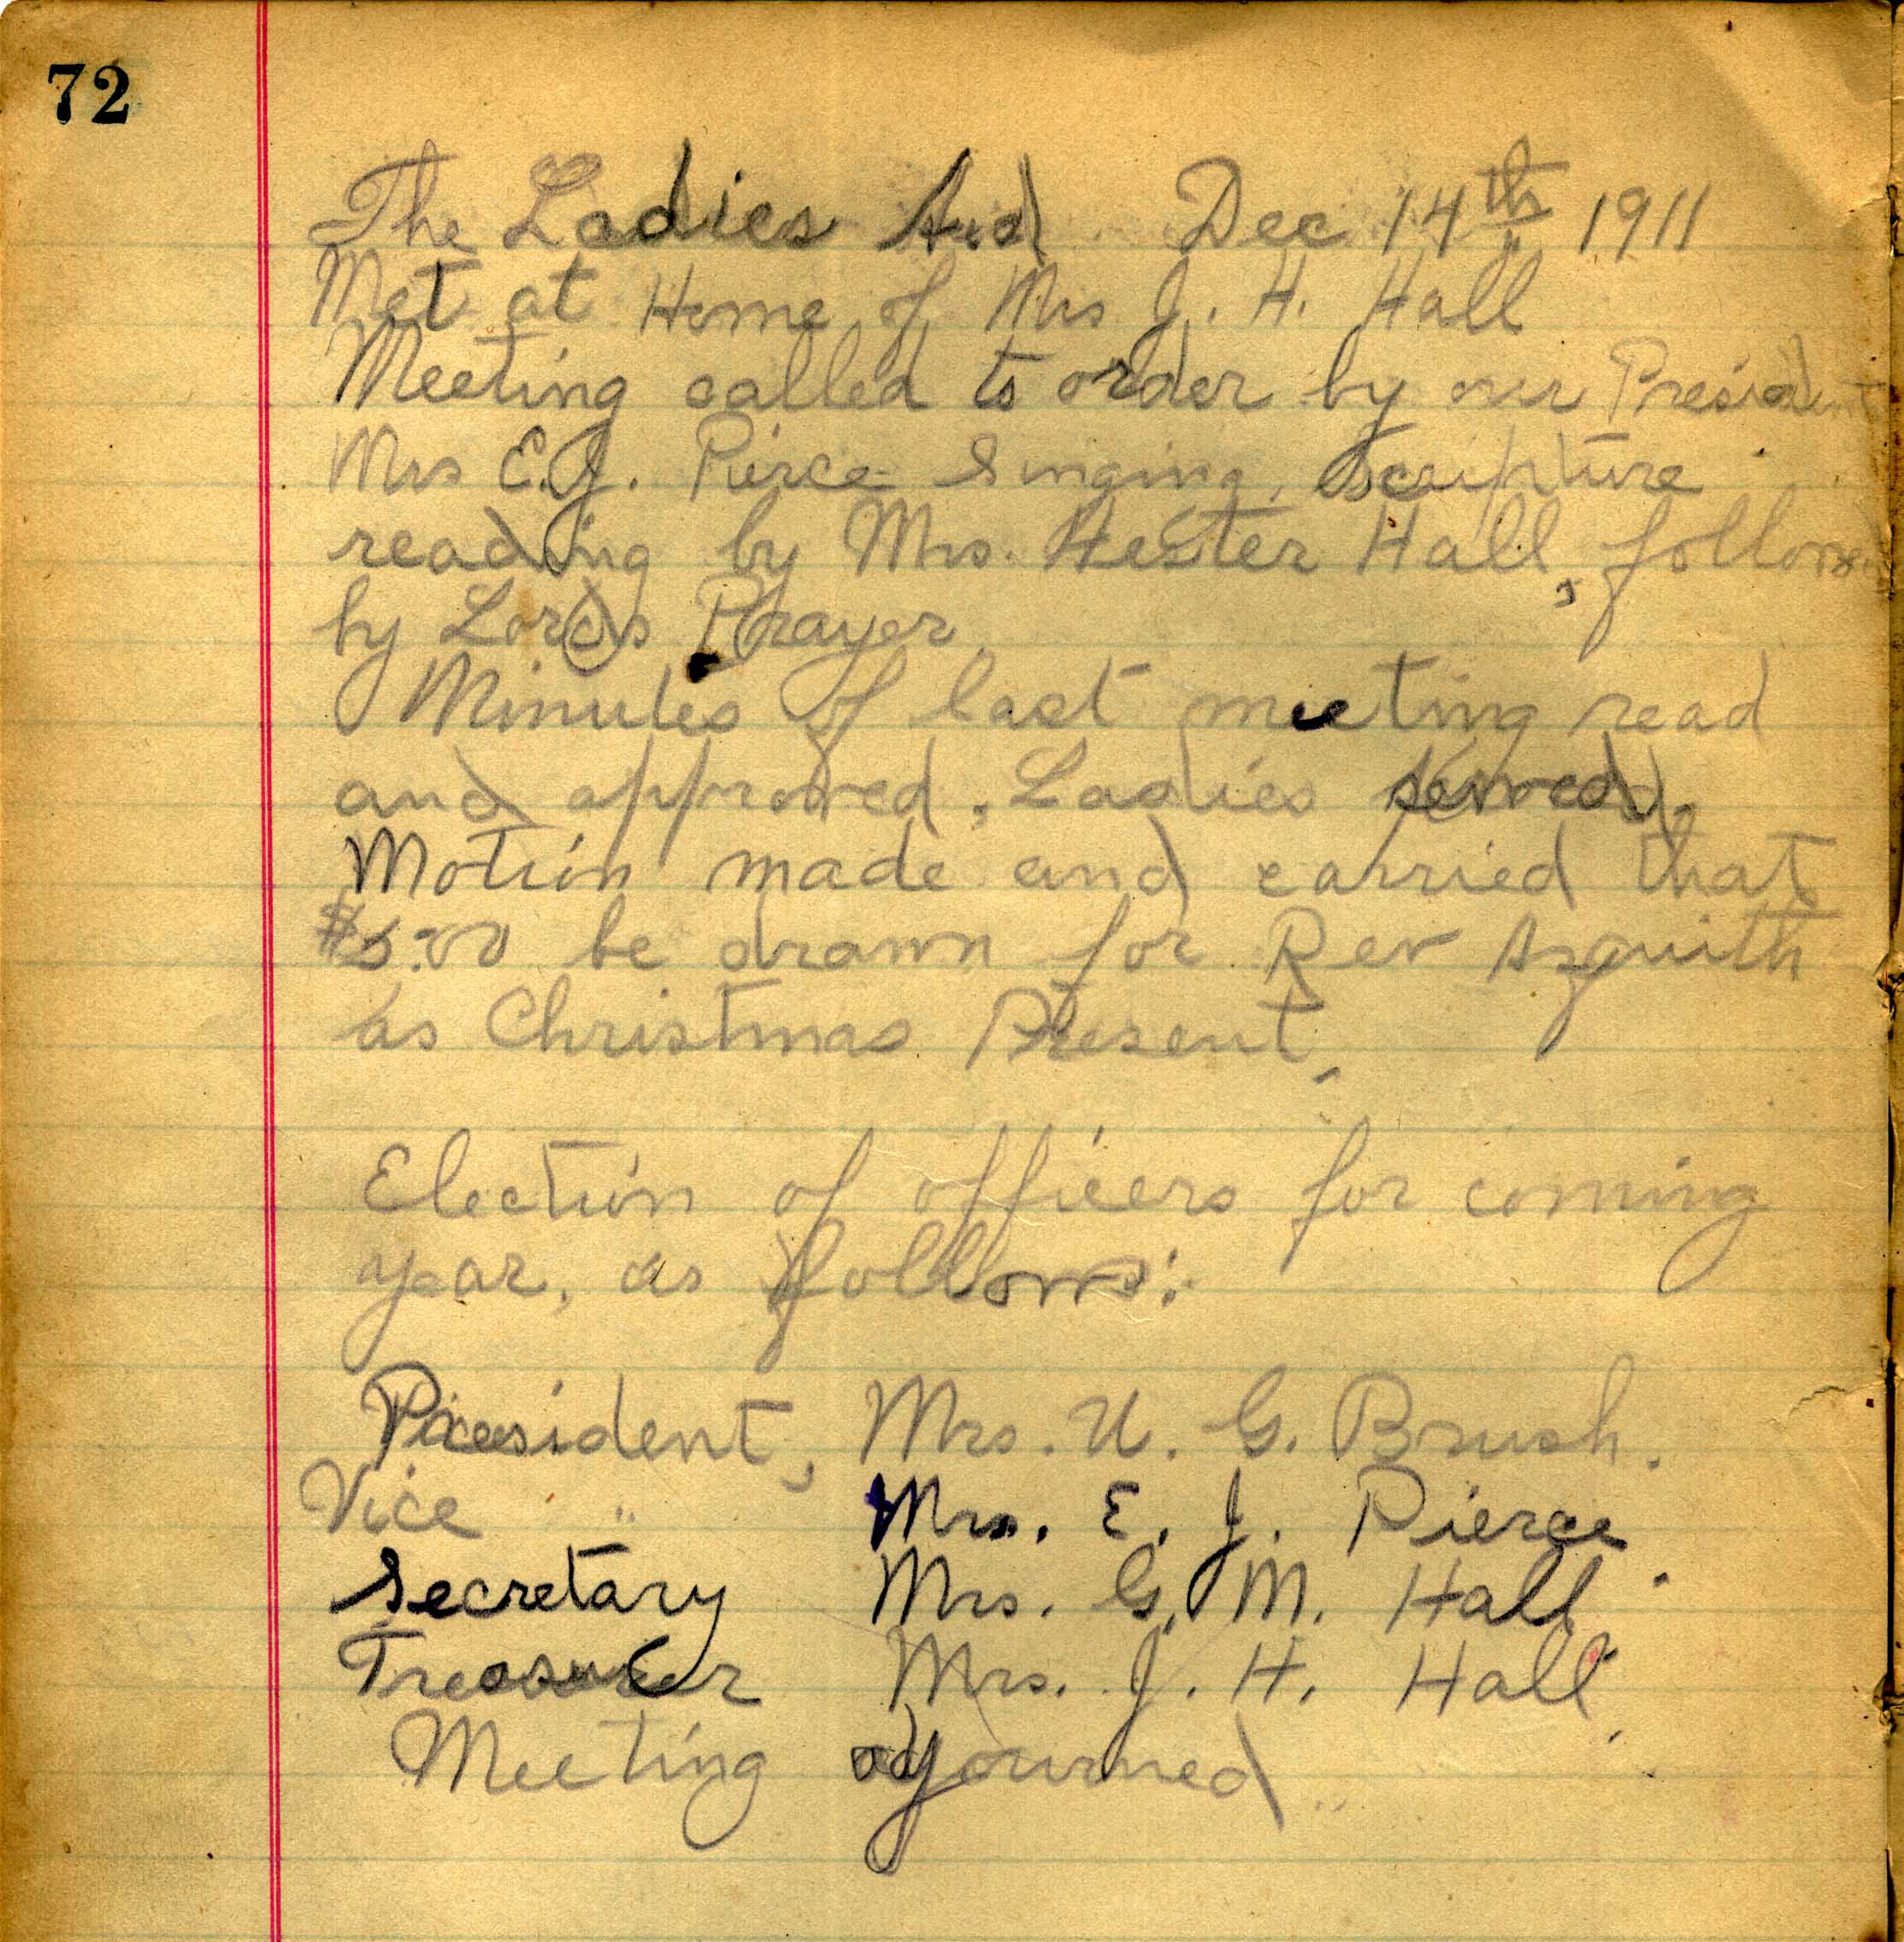 72
The Ladies Aid Dec 14th 1911
Met at Home of Mrs J. H. Hall
Meeting called to order by our President
Mrs E.J. Pierce Singing, Scripture
reading by Mrs. Hester Hall, follow
by Lords Prayer.
Minutes of last meeting read
and approved. Ladies served.
Motion made and carried that
$5.00 be drawn for Rev Asquith
as Christmas Present.
Election of officers for coming
year, as follows:
President, Mrs. U. G. Brush.
Vice " Mrs. E. J. Pierce
Secretary Mrs. G. M. Hall.
Treasurer Mrs. J. H. Hall.
Meeting adjourned